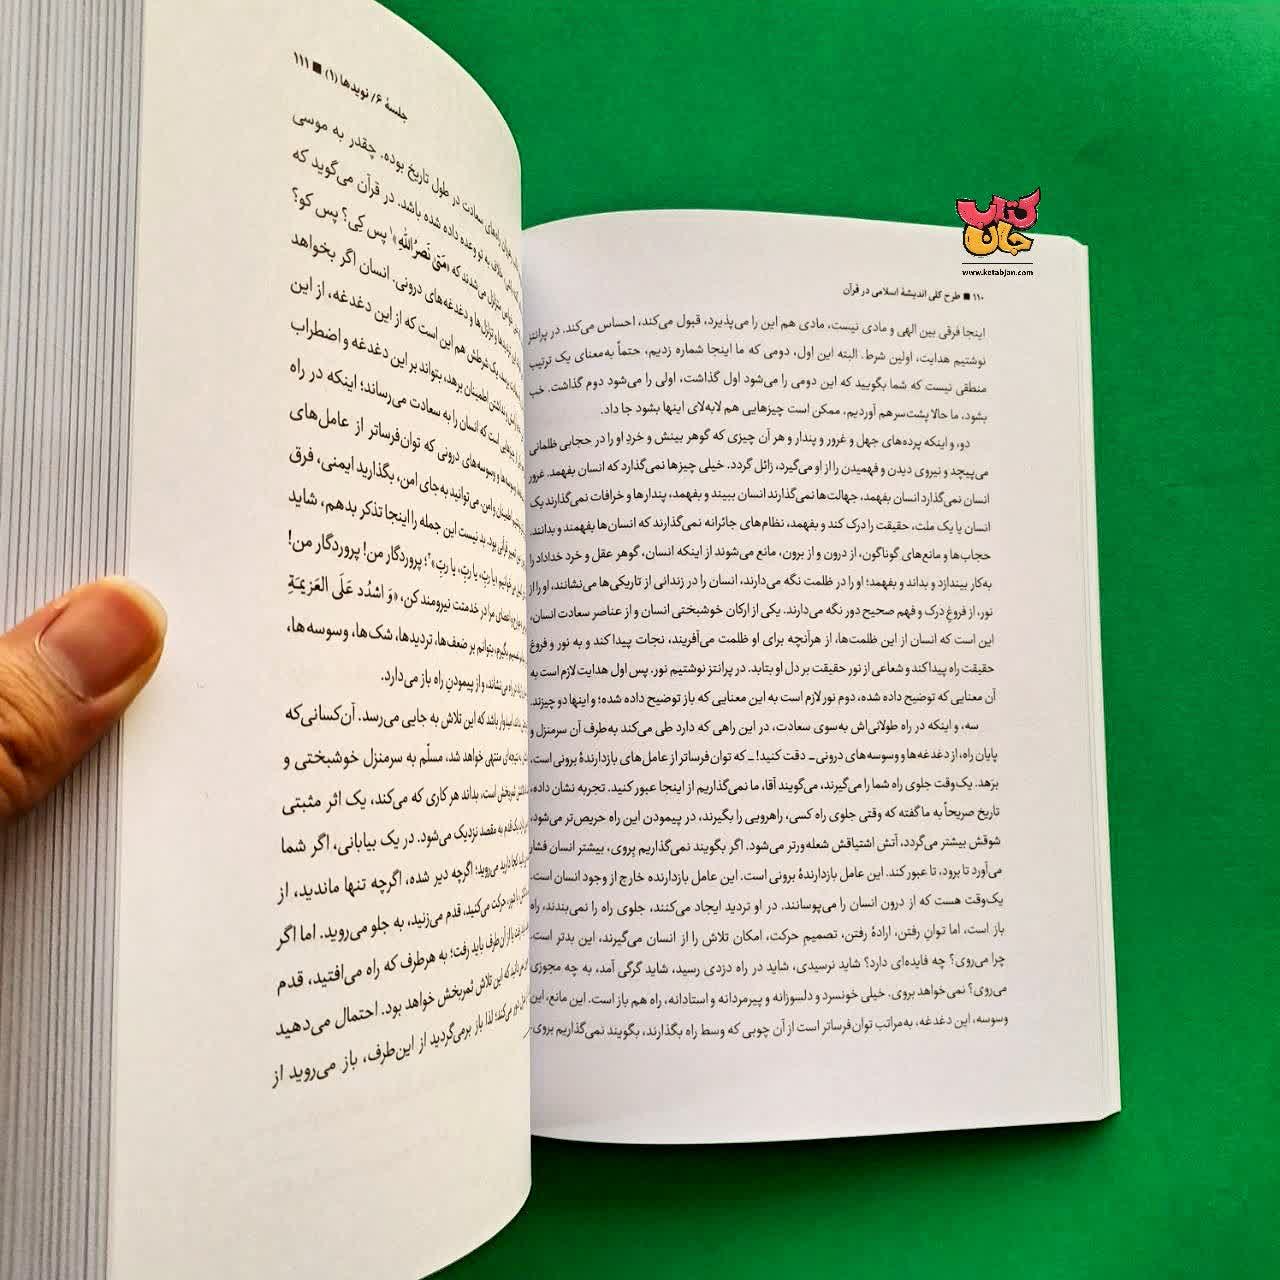 کتاب
جان
www.ketabjan.com
۱۱۰ ■ طرح کلی اندیشهٔ اسلامی در قرآن
اینجا فرقی بین الهی و مادی نیست، مادی هم این را می‌پذیرد، قبول می‌کند، احساس می‌کند. در پرانتز
نوشتیم هدایت، اولین شرط. البته این اول، دومی که ما اینجا شماره زدیم، حتماً به‌معنای یک ترتیب
منطقی نیست که شما بگویید که این دومی را می‌شود اول گذاشت، اولی را می‌شود دوم گذاشت. خب
بشود، ما حالا پشت‌سرهم آوردیم، ممکن است چیزهایی هم لابه‌لای اینها بشود جا داد.
دو، و اینکه پرده‌های جهل و غرور و پندار و هر آن چیزی که گوهر بینش و خردِ او را در حجابی ظلمانی
می‌پیچد و نیروی دیدن و فهمیدن را از او می‌گیرد، زائل گردد. خیلی چیزها نمی‌گذارد که انسان بفهمد. غرور
انسان نمی‌گذارد انسان بفهمد، جهالت‌ها نمی‌گذارند انسان ببیند و بفهمد، پندارها و خرافات نمی‌گذارند یک
انسان یا یک ملت، حقیقت را درک کند و بفهمد، نظام‌های جائرانه نمی‌گذارند که انسان‌ها بفهمند و بدانند.
حجاب‌ها و مانع‌های گوناگون، از درون و از برون، مانع می‌شوند از اینکه انسان، گوهر عقل و خرد خداداد را
به‌کار بیندازد و بداند و بفهمد؛ او را در ظلمت نگه می‌دارند، انسان را در زندانی از تاریکی‌ها می‌نشانند، او را از
نور، از فروغِ درک و فهم صحیح دور نگه می‌دارند. یکی از ارکان خوشبختی انسان و از عناصر سعادت انسان،
این است که انسان از این ظلمت‌ها، از هرآنچه برای او ظلمت می‌آفریند، نجات پیدا کند و به نور و فروغ
حقیقت راه پیدا کند و شعاعی از نور حقیقت بر دل او بتابد. در پرانتز نوشتیم نور. پس اول هدایت لازم است به
آن معنایی که توضیح داده شده، دوم نور لازم است به این معنایی که باز توضیح داده شده؛ و اینها دو چیزند.
سه، و اینکه در راه طولانی‌اش به‌سوی سعادت، در این راهی که دارد طی می‌کند به‌طرف آن سرمنزل و
پایان راه، از دغدغه‌ها و وسوسه‌های درونی ـ دقت کنید! ـ که توان‌فرساتر از عامل‌های بازدارندهٔ برونی است،
برهد. یک‌وقت جلوی راه شما را می‌گیرند، می‌گویند آقا، ما نمی‌گذاریم از اینجا عبور کنید. تجربه نشان داده،
تاریخ صریحاً به ما گفته که وقتی جلوی راه کسی، راهرویی را بگیرند، در پیمودن این راه حریص‌تر می‌شود،
شوقش بیشتر می‌گردد، آتش اشتیاقش شعله‌ورتر می‌شود. اگر بگویند نمی‌گذاریم بروی، بیشتر انسان فشار
می‌آورد تا برود، تا عبور کند. این عامل بازدارندهٔ برونی است. این عامل بازدارنده خارج از وجود انسان است.
یک‌وقت هست که از درون انسان را می‌پوسانند. در او تردید ایجاد می‌کنند، جلوی راه را نمی‌بندند، راه
باز است، اما توانِ رفتن، ارادهٔ رفتن، تصمیم حرکت، امکان تلاش را از انسان می‌گیرند، این بدتر است.
چرا می‌روی؟ چه فایده‌ای دارد؟ شاید نرسیدی، شاید در راه دزدی رسید، شاید گرگی آمد، به چه مجوزی
می‌روی؟ نمی‌خواهد بروی. خیلی خونسرد و دلسوزانه و پیرمردانه و استادانه، راه هم باز است. این مانع، این
وسوسه، این دغدغه، به‌مراتب توان‌فرساتر است از آن چوبی که وسط راه بگذارند، بگویند نمی‌گذاریم بروی.
جلسهٔ ۶/ نویدها (۱) ■ ۱۱۱
راه‌های سعادت در طول تاریخ بوده. چقدر به موسی
به تو وعده داده شده باشد. در قرآن می‌گوید که
متزلزل می‌شدند که «مَتیٰ نَصرُ اللهِ»۱ پس کِی؟ پس کو؟
تزلزل‌ها و دغدغه‌های درونی. انسان اگر بخواهد
یک شرطش هم این است که از این دغدغه، از این
نداشتن اطمینان برهد، بتواند بر این دغدغه و اضطراب
است که انسان را به سعادت می‌رساند؛ اینکه در راه
وسوسه‌های درونی که توان‌فرساتر از عامل‌های
اطمینان و امن. می‌توانید به‌جای امن، بگذارید ایمنی، فرق
تعبیر قرآنی بود. بد نیست این جمله را اینجا تذکر بدهم، شاید
می‌خوانیم «یا ربّ، یا ربّ، یا ربّ»۲؛ پروردگار من! پروردگار من!
اعضای مرا در خدمتت نیرومند کن، «وَ اشدُد عَلَی العَزیمَةِ
بگیرم، بتوانم بر ضعف‌ها، تردیدها، شک‌ها، وسوسه‌ها،
می‌نشاند، و از پیمودن راه باز می‌دارد.
امیدوار باشد که این تلاش به جایی می‌رسد. آن‌کسانی‌که
نتیجه‌ای منتهی خواهد شد، مسلّم به سرمنزل خوشبختی و
ثمربخش است، بداند هر کاری که می‌کند، یک اثر مثبتی
یک قدم به مقصد نزدیک می‌شود. در یک بیابانی، اگر شما
کجا دارید می‌روید؛ اگرچه دیر شده، اگرچه تنها ماندید، از
حرکت می‌کنید، قدم می‌زنید، به جلو می‌روید. اما اگر
از آن‌طرف باید رفت؛ به هرطرف که راه می‌افتید، قدم
که این تلاش ثمربخش خواهد بود. احتمال می‌دهید
لذا باز برمی‌گردید از این‌طرف، باز می‌روید از